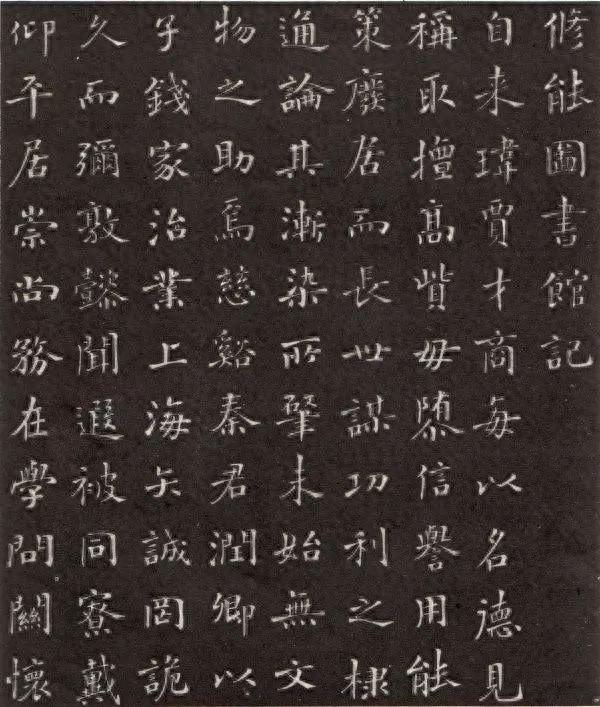 修能圖書館記
自来瑋賈才商每以名德見
稱取擅高貲毋隳信譽用能
策廢居而長世謀功利之棣
通論其漸染所肇未始無文
物之助焉慈谿秦君潤卿以
子錢家治業上海矢誠罔詭
久而彌敦懿聞遐被同寮戴
仰平居崇尚務在學問關懷